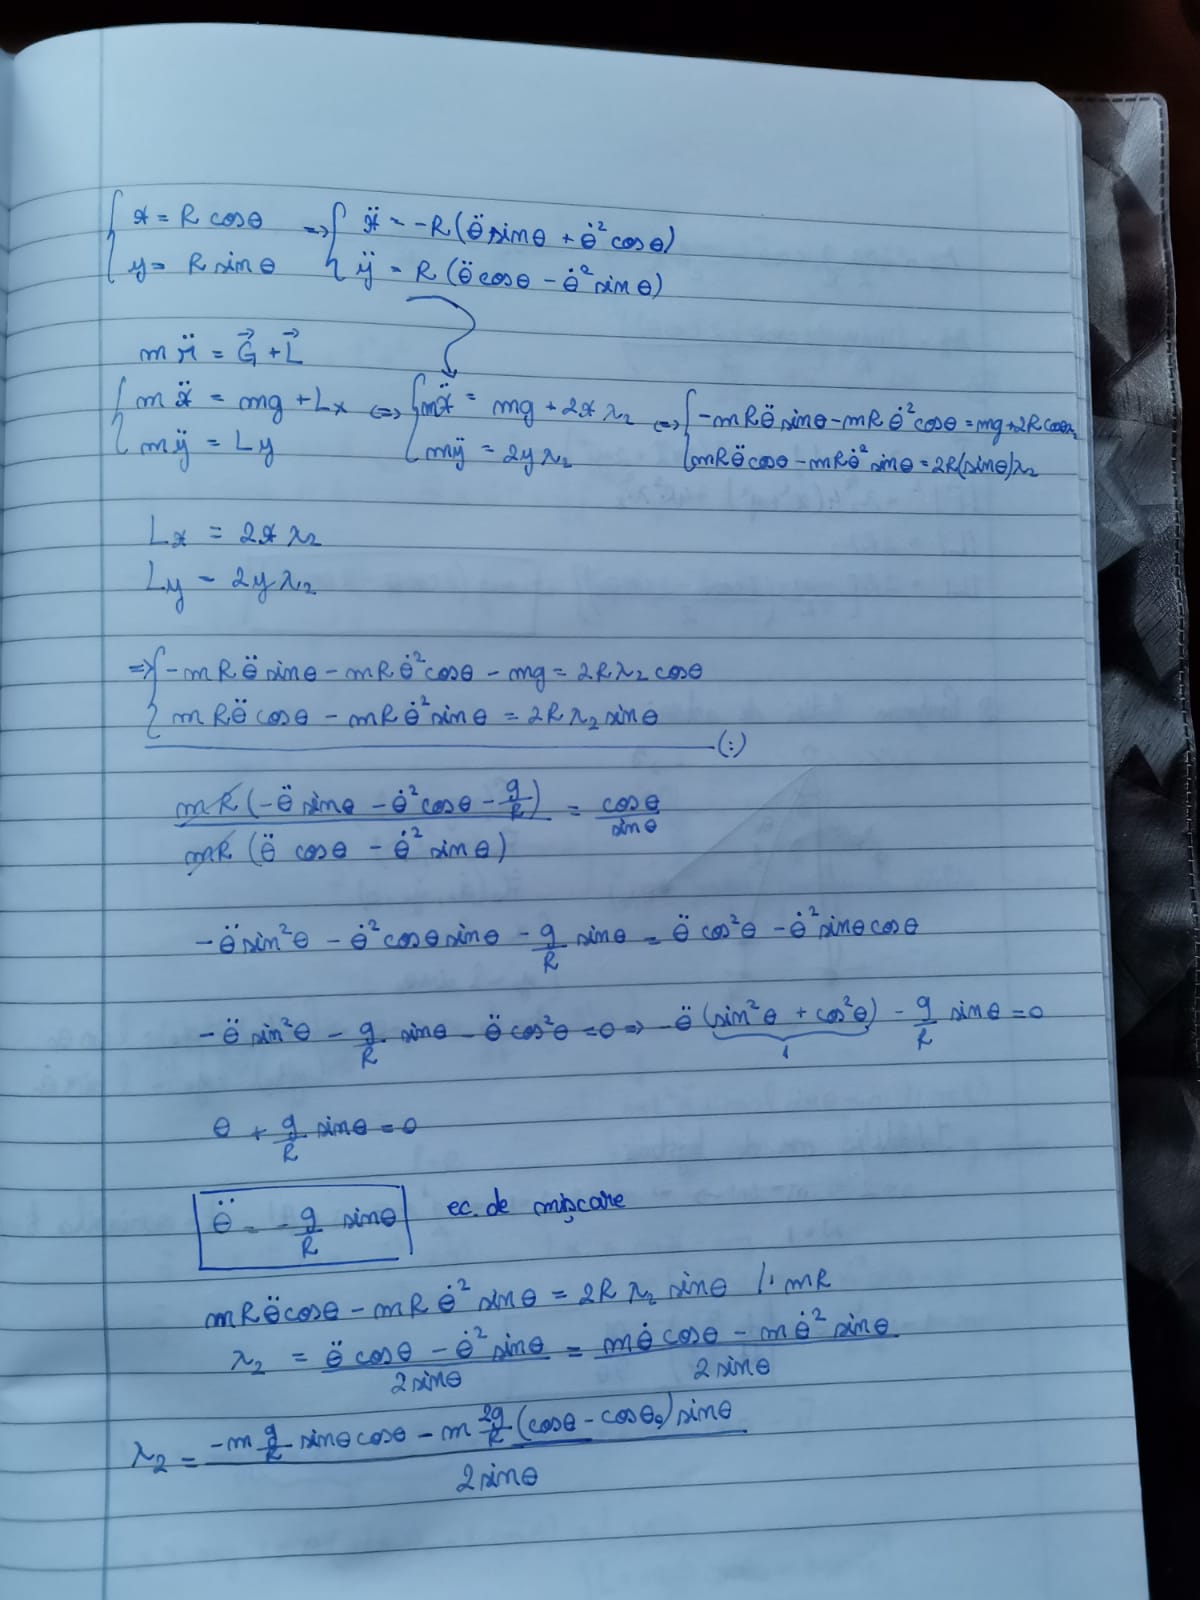 { x = R cosθ => { ẍ = -R(θ̈ sinθ + θ̇² cosθ)
{ y = R sinθ { ÿ = R(θ̈ cosθ - θ̇² sinθ)
m r̈ = G⃗ + L⃗
{ m ẍ = mg + Lx <=> { mẍ = mg + 2x λ₂ <=> { -mRθ̈ sinθ - mR θ̇² cosθ = mg + 2R cosθλ₂
{ mÿ = Ly { mÿ = 2y λ₂ { mRθ̈ cosθ - mRθ̇² sinθ = 2R(sinθ)λ₂
Lx = 2x λ₂
Ly = 2y λ₂
=> { -mRθ̈ sinθ - mRθ̇² cosθ - mg = 2Rλ₂ cosθ
{ mRθ̈ cosθ - mRθ̇² sinθ = 2Rλ₂ sinθ
(:)
mR(-θ̈ sinθ - θ̇² cosθ - g/R) / mR(θ̈ cosθ - θ̇² sinθ) = cosθ/sinθ
-θ̈ sin²θ - θ̇² cosθ sinθ - g/R sinθ = θ̈ cos²θ - θ̇² sinθ cosθ
-θ̈ sin²θ - g/R sinθ - θ̈ cos²θ = 0 => -θ̈ (sin²θ + cos²θ) - g/R sinθ = 0
1
θ + g/R sinθ = 0
θ̈ = - g/R sinθ ec. de mișcare
mRθ̈ cosθ - mRθ̇² sinθ = 2R λ₂ sinθ |: mR
λ₂ = (θ̈ cosθ - θ̇² sinθ)/(2 sinθ) = (mθ̇ cosθ - mθ̇² sinθ)/(2 sinθ)
λ₂ = (-m g/R sinθ cosθ - m 2g/R (cosθ - cosθ₀) sinθ)/(2 sinθ)